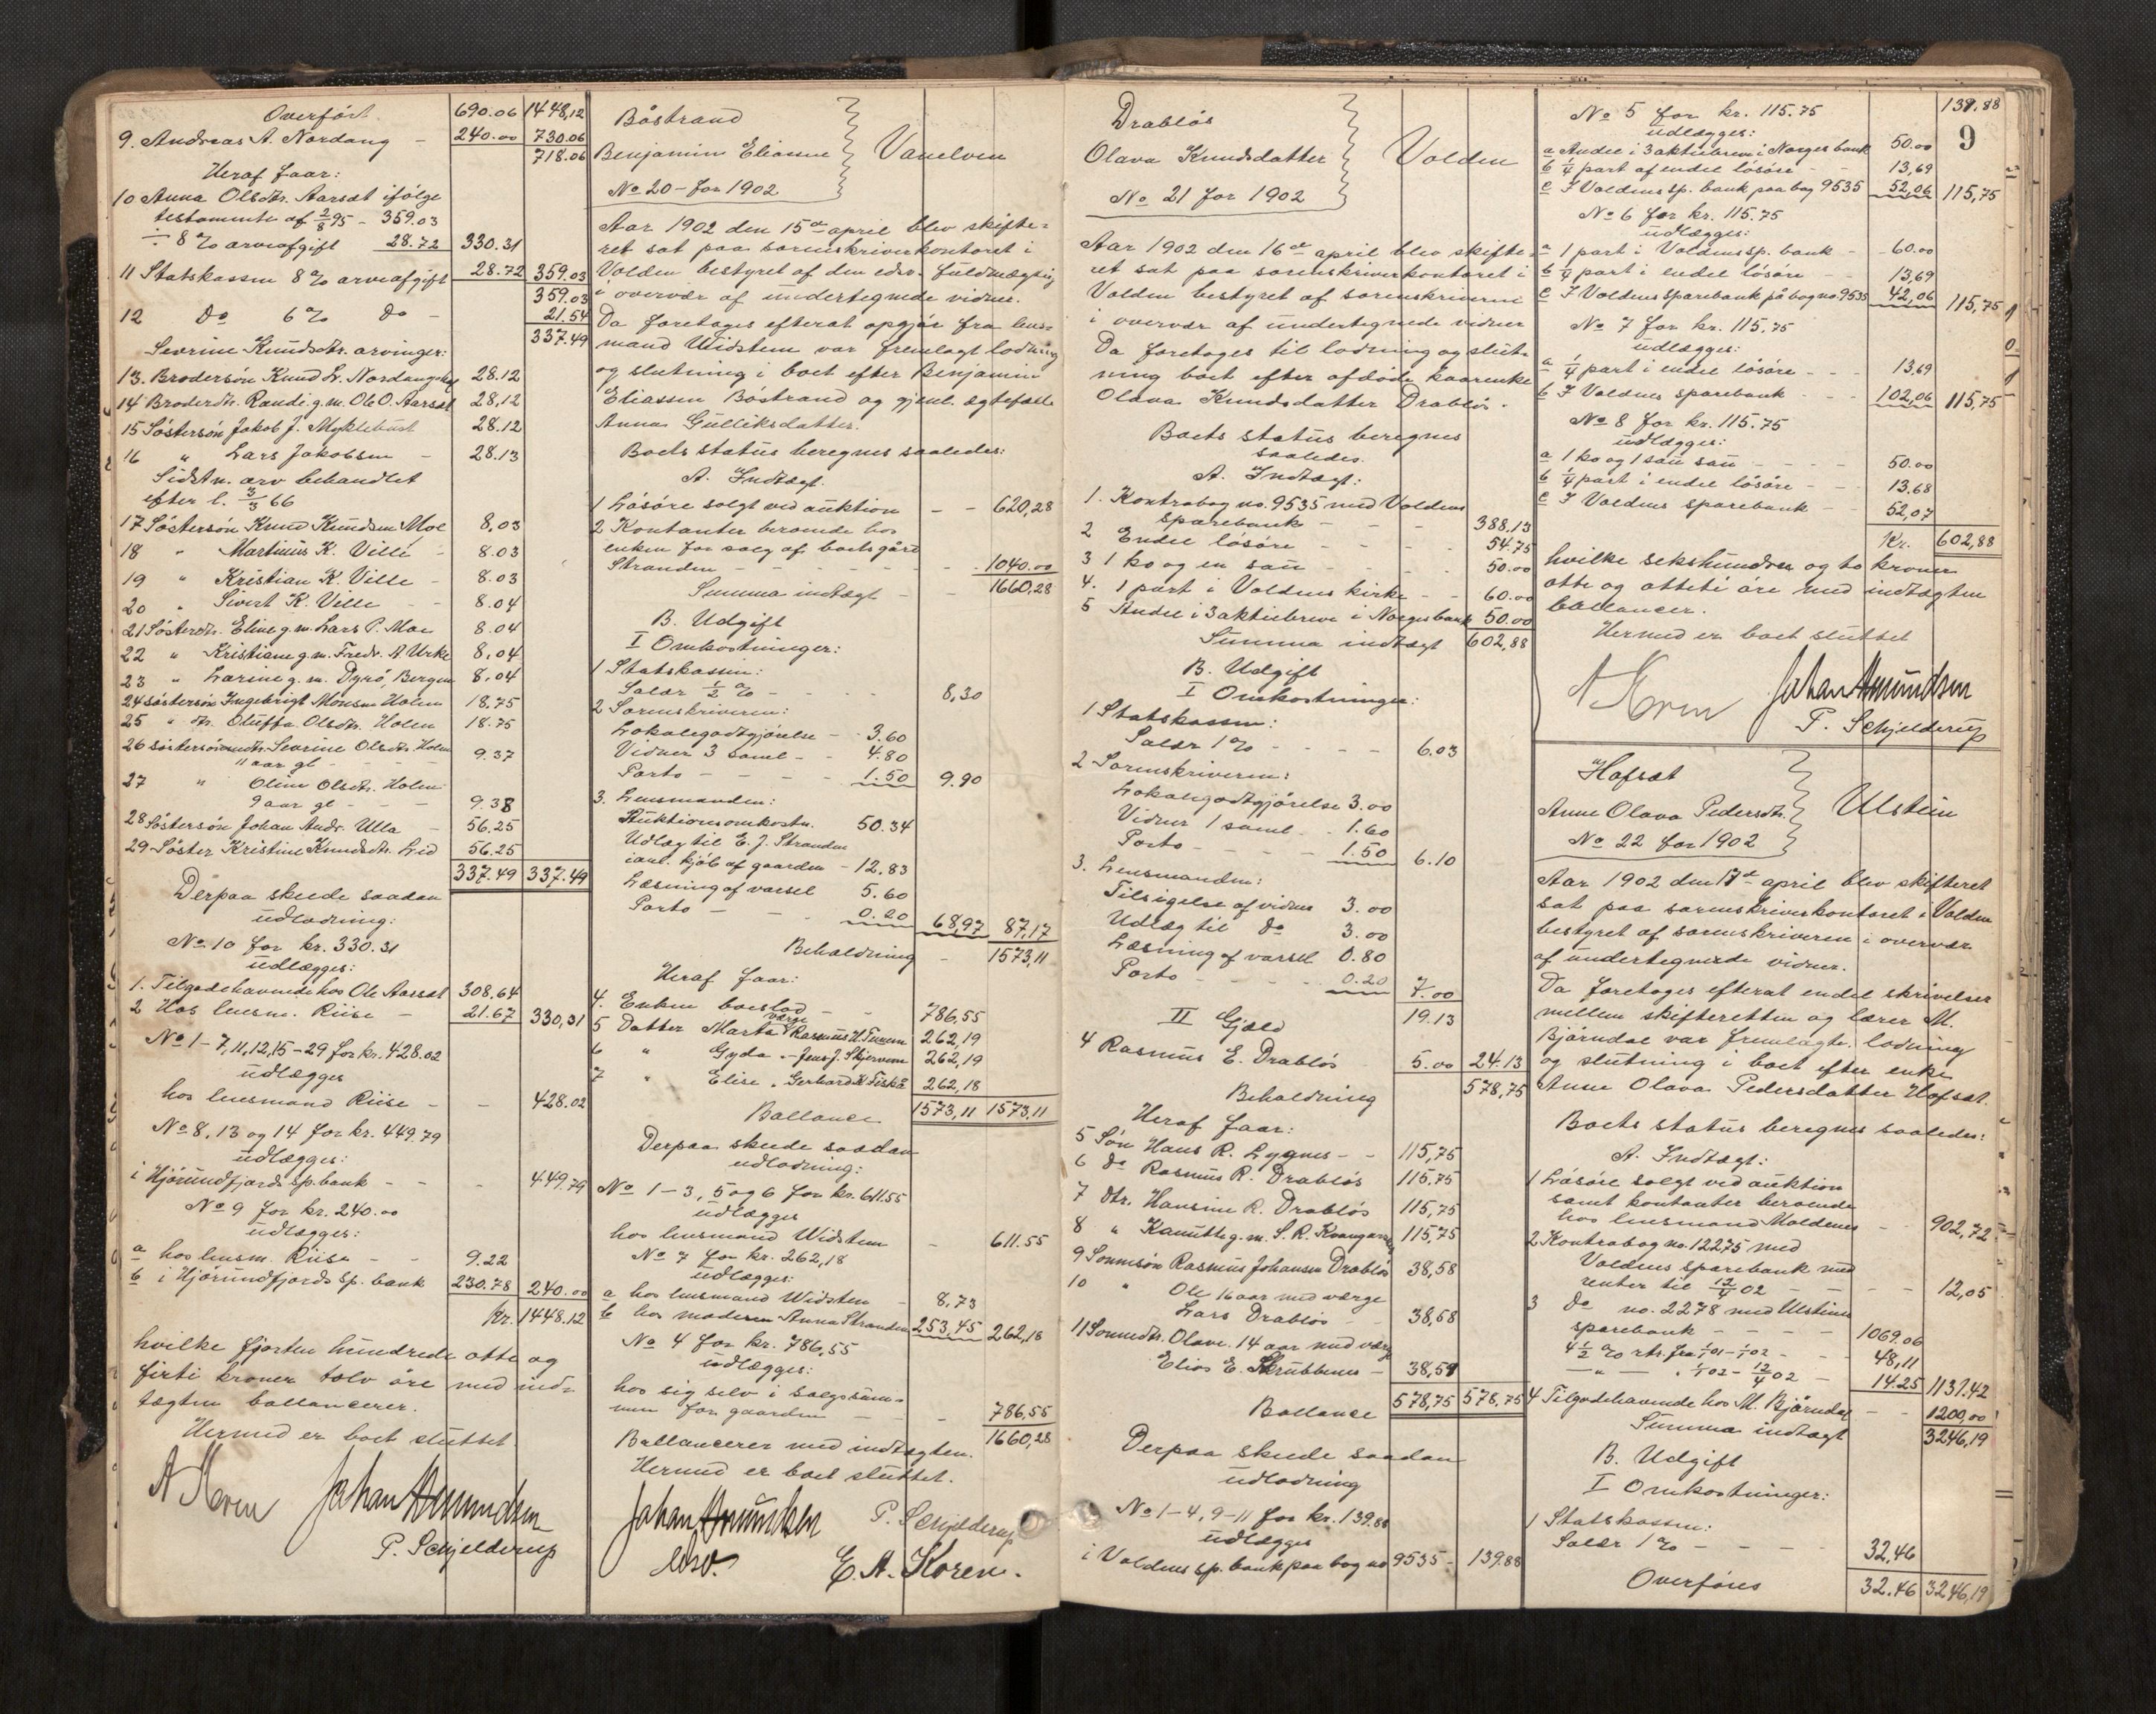 Overført 690.06 1448,12
9. Andreas A. Nordang - 240.00 730.06
718.06
Heraf faar:
10 Anna Olsdtr. Aarsæt ifølge
testamente af 2/8 95 - 359.03
÷ 8 % arveafgift 28.72 330.31
11 Statskassen 8 % arveafgift 28.72 359.03
359.03
12 do 6 % do - 21.54
337.49
Sevrine Knudsdtr. arvinger:
13. Brodersøn Knud L. Nordang 28.12
14 Broderdtr. Randi g.m. Ole O. Aarsæt 28,12
15 Søstersøn Jakob J. Myklebust 28.12
16 " Lars Jakobsen - 28.13
Sidstn. arv behandlet
efter l. 3/3 66
17 Søstersøn Knud Knudsen Moe 8,03
18 " Martinus K. Ville - 8.03
19 " Kristian K. Ville - 8.03
20 " Sivert K. Ville - 8.04
21 Søsterdtr. Eline g.m. Lars P. Moe 8.04
22 " Kristiane g.m. Fredr. A Urke 8,04
23 " Larine g.m. Dyrø, Bergen 8.04
24 søstersøn Ingebrigt Monsen Holen 18,75
25 " dtr. Oluffa Olsdtr. Holen 18.75
26 søstersønsdtr. Sevrine Olsdtr. Holen
11 aar gl - - - 9.37
27 " Oline Olsdtr. Holen
9 aar gl - - - 9.38
28 Søstersøn Johan Andr. Ulla - 56.25
29 Søster Kristine Knudsdtr. Lid 56.25
337.49 337.49
Derpaa skede saadan
udlodning:
No 10 for kr. 330.31
udlægges:
1. Tilgodehavende hos Ole Aarsæt 308,64
2 Hos lensm. Riise - 21.67 330,31
No 1-7, 11, 12, 15-29 for kr. 428.02
udlægges
hos lensmand Riise - - 428.02
No 8, 13 og 14 for kr. 449.79
udlægges:
i Hjørundfjords sp. bank - - - 449.79
No 9 for kr. 240.00
udlægges:
a hos lensm. Riise - - 9.22
b i Hjørundfjords sp. bank 230.78 240.00
kr. 1448.12
hvilke fjorten hundrede otte og
firti kroner tolv øre med ind=
tægten ballancerer.
Hermed er boet sluttet.
A Koren Johan Amundsen
P. Schjelderup
Böstrand
Benjamin Eliassen Vanelven
No 20 - for 1902
Aar 1902 den 15de april blev skifte=
ret sat paa sorenskriverkontoret i
Volden bestyret af den edsv. fuldmægtig
i overvær af undertegnede vidner.
Da foretoges efterat opgjør fra lens=
mand Widsteen var fremlagt lodning
og slutning i boet efter Benjamin
Eliassen Böstrand og gjenl. ægtefælle
Anna Gulliksdatter.
Boets status beregnes saaledes:
A. Indtægt.
1 Løsøre solgt ved auktion - - 620,28
2 Kontanter beroende hos
enken for salg af boets gård
Stranden - - - - - - 1040.00
Summa indtægt - - 1660,28
B. Udgift
I Omkostninger:
1 Statskassen:
Salær 1/2 % - - - - 8,30
2 Sorenskriveren:
Lokalegodtgjørelse - 3.60
Vidner 3 saml - - 4.80
Porto - - - - 1.50 9,90
3. Lensmanden:
Auktionsomkostn. 50.34
Udlæg til E. J. Stranden
ianl. kjøb af gaarden - 12.83
Læsning af varsel 5.60
Porto - - - 0.20 68,97 87,17
Beholdning - 1573,11
Heraf faar:
4. Enken boeslod - - 786,55
5 Datter Marta værge Rasmus H. Tunem 262,19
6 " Gyda - Jens J. Skjervem 262,19
7 " Elise . Gerhard K. Fiskå 262,18
Ballance 1573,11 1573,11
Derpaa skede saadan
udlodning:
No 1-3, 5 og 6 for kr. 611.55
udlægges
hos lensmand Widsteen - 611.55
No 7 for kr. 262,18
udlægges:
a hos lensmand Widsteen - 8,73
b hos moderen Anna Stranden 253,45 262,18
No 4 for kr. 786,55
udlægges:
hos sig selv i salgssum=
men for gaarden - - - 786,55
Ballancerer med indtægten. 1660,28
Hermed er boet sluttet.
Johan Amundsen P. Schjelderup
edsv. E. A. Koren.
Drabløs
Olava Knudsdatter Volden
No 21 for 1902
Aar 1902 den 16de april blev skifte=
ret sat paa sorenskriverkontoret i
Volden bestyret af sorenskriveren
i overvær af undertegnede vidner
Da foretoges til lodning og slut=
ning boet efter afdøde kaarenke
Olava Knudsdatter Drabløs.
Boets status beregnes
saaledes.
A. Indtægt:
1. Kontrabog no. 9535 med Voldens
sparebank - - - 388.13
2 Endel løsøre - - - - 54.75
3 1 ko og en sau - - - 50.00
4. 1 part i Voldens kirke - - 60.00
5 Andel i 3 aktiebreve i Norges bank 50.00
Summa indtægt 602,88
B. Udgift
I Omkostninger:
1 Statskassen:
Salær 1 % - - - - 6.03
2 Sorenskriveren:
Lokalegodtgjørelse 3.00
Vidner 1 saml. - 1.60
Porto - - - - 1.50 6.10
3. Lensmanden:
Tilsigelse af vidner 3.00
Udlæg til do 3.00
Læsning af varsel 0.80
Porto - - - - 0.20 7.00
19.13
II Gjæld
4 Rasmus E. Drabløs 5.00 24.13
Beholdning 578,75
Heraf faar:
5 Søn Hans R. Lygnes - - 115,75
6 do Rasmus R. Drabløs 115,75
7 dtr. Hansine R. Drabløs 115,75
8 " Kanutte g.m. S. R. Kvangarsnes 115,75
9 Sønnesøn Rasmus Johansen Drabløs 38,58
10 " Ole 16 aar med værge
Lars Drabløs - - 38,58
11 Sønnedtr. Olave 14 aar med værge
Elias E. Skrubbenes - 38,59
Ballance 578,75 578,75
Derpaa skede saadan
udlodning
No 1-4, 9-11 for kr. 139.88
udlægges
i Voldens sp. bank paa bog no 9535 - 139.88
139.88
9
No 5 for kr. 115.75
udlægges:
a Andel i 3 aktiebreve i Norges bank 50.00
b 1/4 part af endel løsøre - - 13,69
c I Voldens sp. bank paa bog 9535 52,06 115,75
No 6 for kr. 115.75
udlægges:
a 1 part i Voldens sp. bank - - 60.00
b 1/4 part i endel løsøre - - 13,69
c I Voldens sparebank på bog no. 9535 42,06 115,75
No 7 for kr. 115,75
udlægges:
a 1/4 part i endel løsøre - - - 13,69
b I Voldens sparebank - - - 102,06 115,75
No 8 for kr. 115.75
udlægges:
a 1 ko og 1 sau sau - - - - 50.00
b 1/4 part i endel løsøre - - - 13,68
c I Voldens sparebank - - 52,07
Kr. 602,88
hvilke sekshundrer og to kroner
otte og otteti øre med indtægten
ballancer.
Hermed er boet sluttet
A Koren Johan Amundsen
P. Schjelderup
Hofsæt
Anne Olava Pedersdtr. Ulstein
No 22 for 1902
Aar 1902 den 17de april blev skifteret
sat paa sorenskriverkontoret i Volden
bestyret af sorenskriveren i overvær
af undertegnede vidner.
Da foretoges efterat endel skrivelser
mellem skifteretten og lærer M.
Bjørndal var fremlagte, lodning
og slutning i boet efter enke
Anne Olava Pedersdatter Hofsæt.
Boets status beregnes saaledes:
A. Indtægt:
1 Løsøre solgt ved auktion
samt kontanter beroende
hos lensmand Moldenes - - 902,72
2 Kontrabog no. 12275 med
Voldens sparebank med
renter til 12/4 02 - - - - 12,05
3 do no. 2278 med Ulsteins
sparebank - - - - 1069.06
4 1/2 % rtr. fra 1/1 01 - 1/1 02 - - 48,11
-"- . 1/1 02 - 12/4 02 - 14.25 1131.42
4 Tilgodehavende hos M. Bjørndal - - 1200,00
Summa indtægt 3246,19
B. Udgift
I Omkostninger:
1 Statskassen:
Salær 1 % - - - - 32,46
Overføres 32.46 3246,19